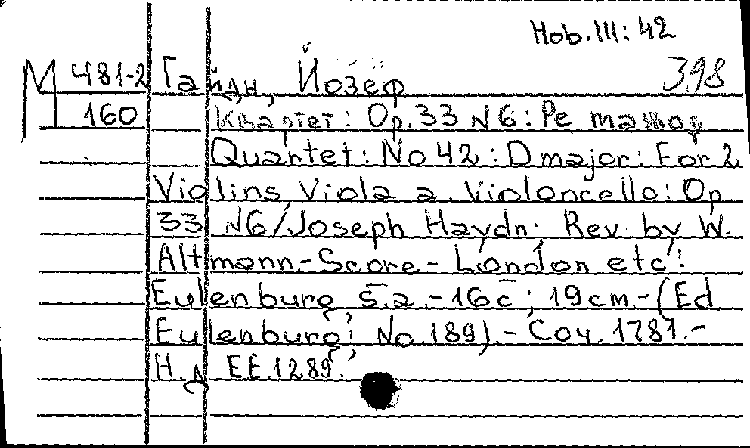 Hob.III: 42
М 481-2 Гайдн, Йозеф 398
160 Квартет: Op.33 N6: Ре мажор
Quartet: No 42: D major: For 2
Violins, Viola a. Violoncello: Op
33 N6/Joseph Haydn; Rev. by W.
Altmann.-Score.-London etc:
Eulenburg, s.a.-16c; 19cm-(Ed
Eulenburg; No.189).-Соч. 1781.-
Н.д. EE.1289.